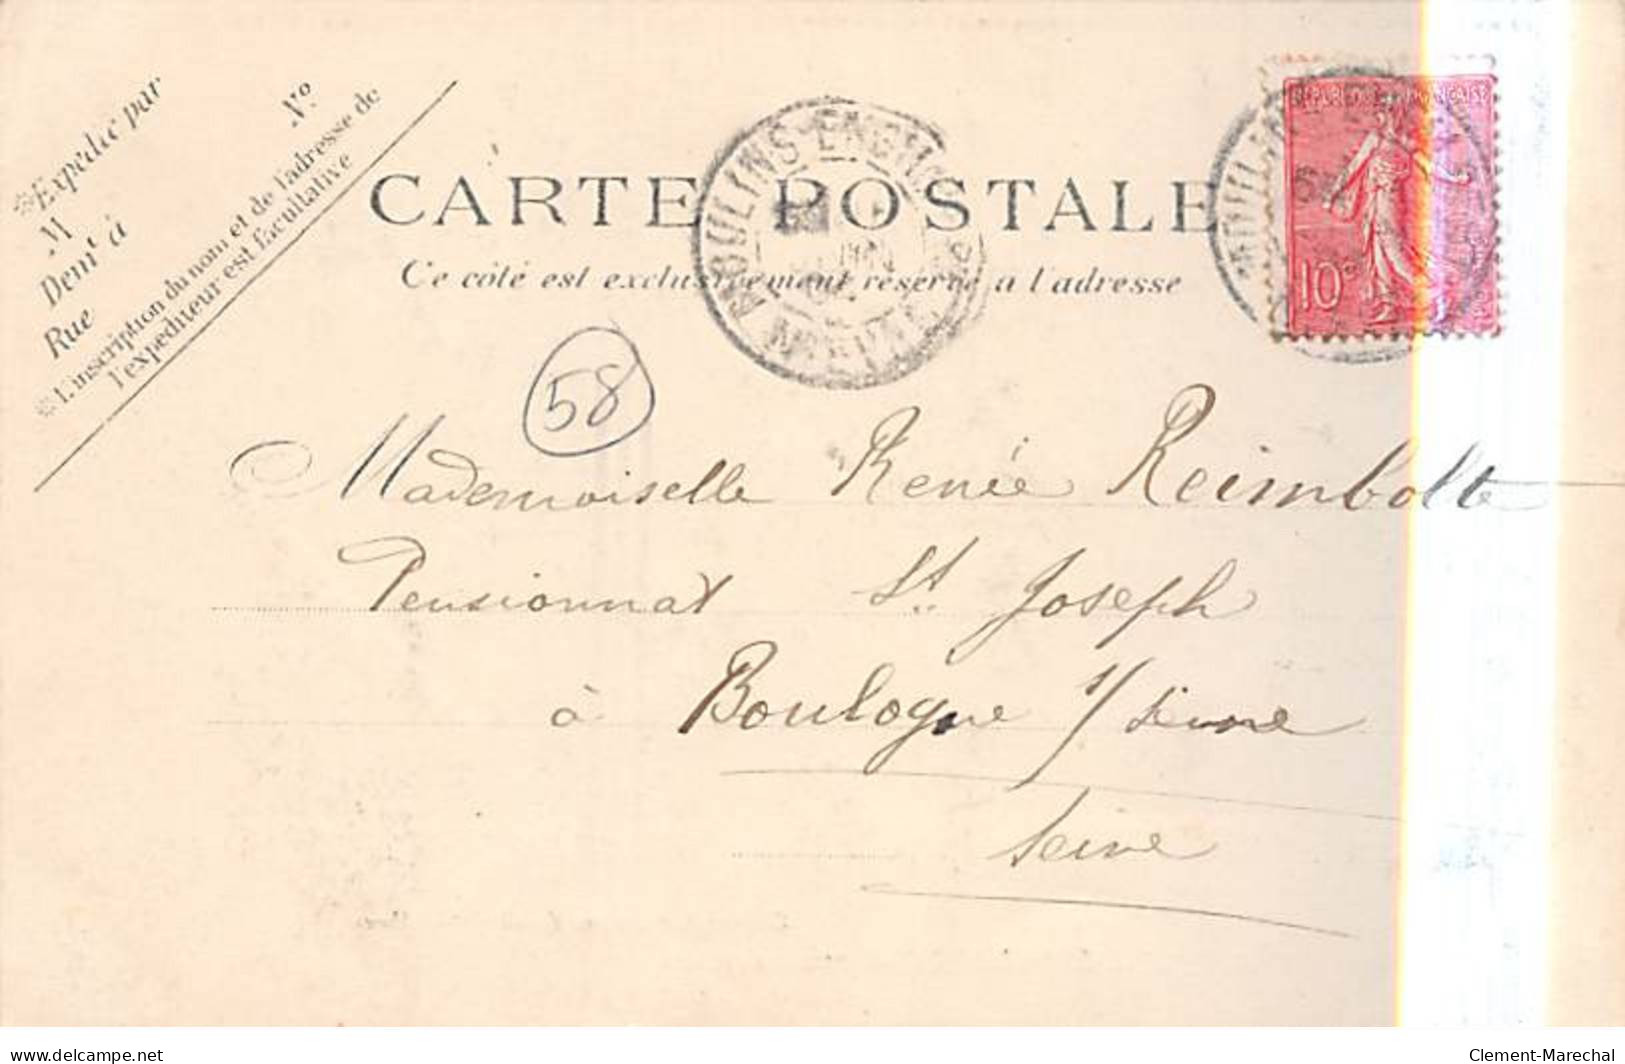 Expédié par
M
Demt à
Rue
No
L'inscription du nom et de l'adresse de
l'expéditeur est facultative
CARTE POSTALE
Ce côté est exclusivement réservé a l'adresse
MOULINS-ENGILBERT
NIÈVRE
RÉPUBLIQUE FRANÇAISE
10c
58
Mademoiselle Renée Reimbolte
Pensionnat St Joseph
à Boulogne s/ Seine
Seine
delcampe.net
Clement-Marechal